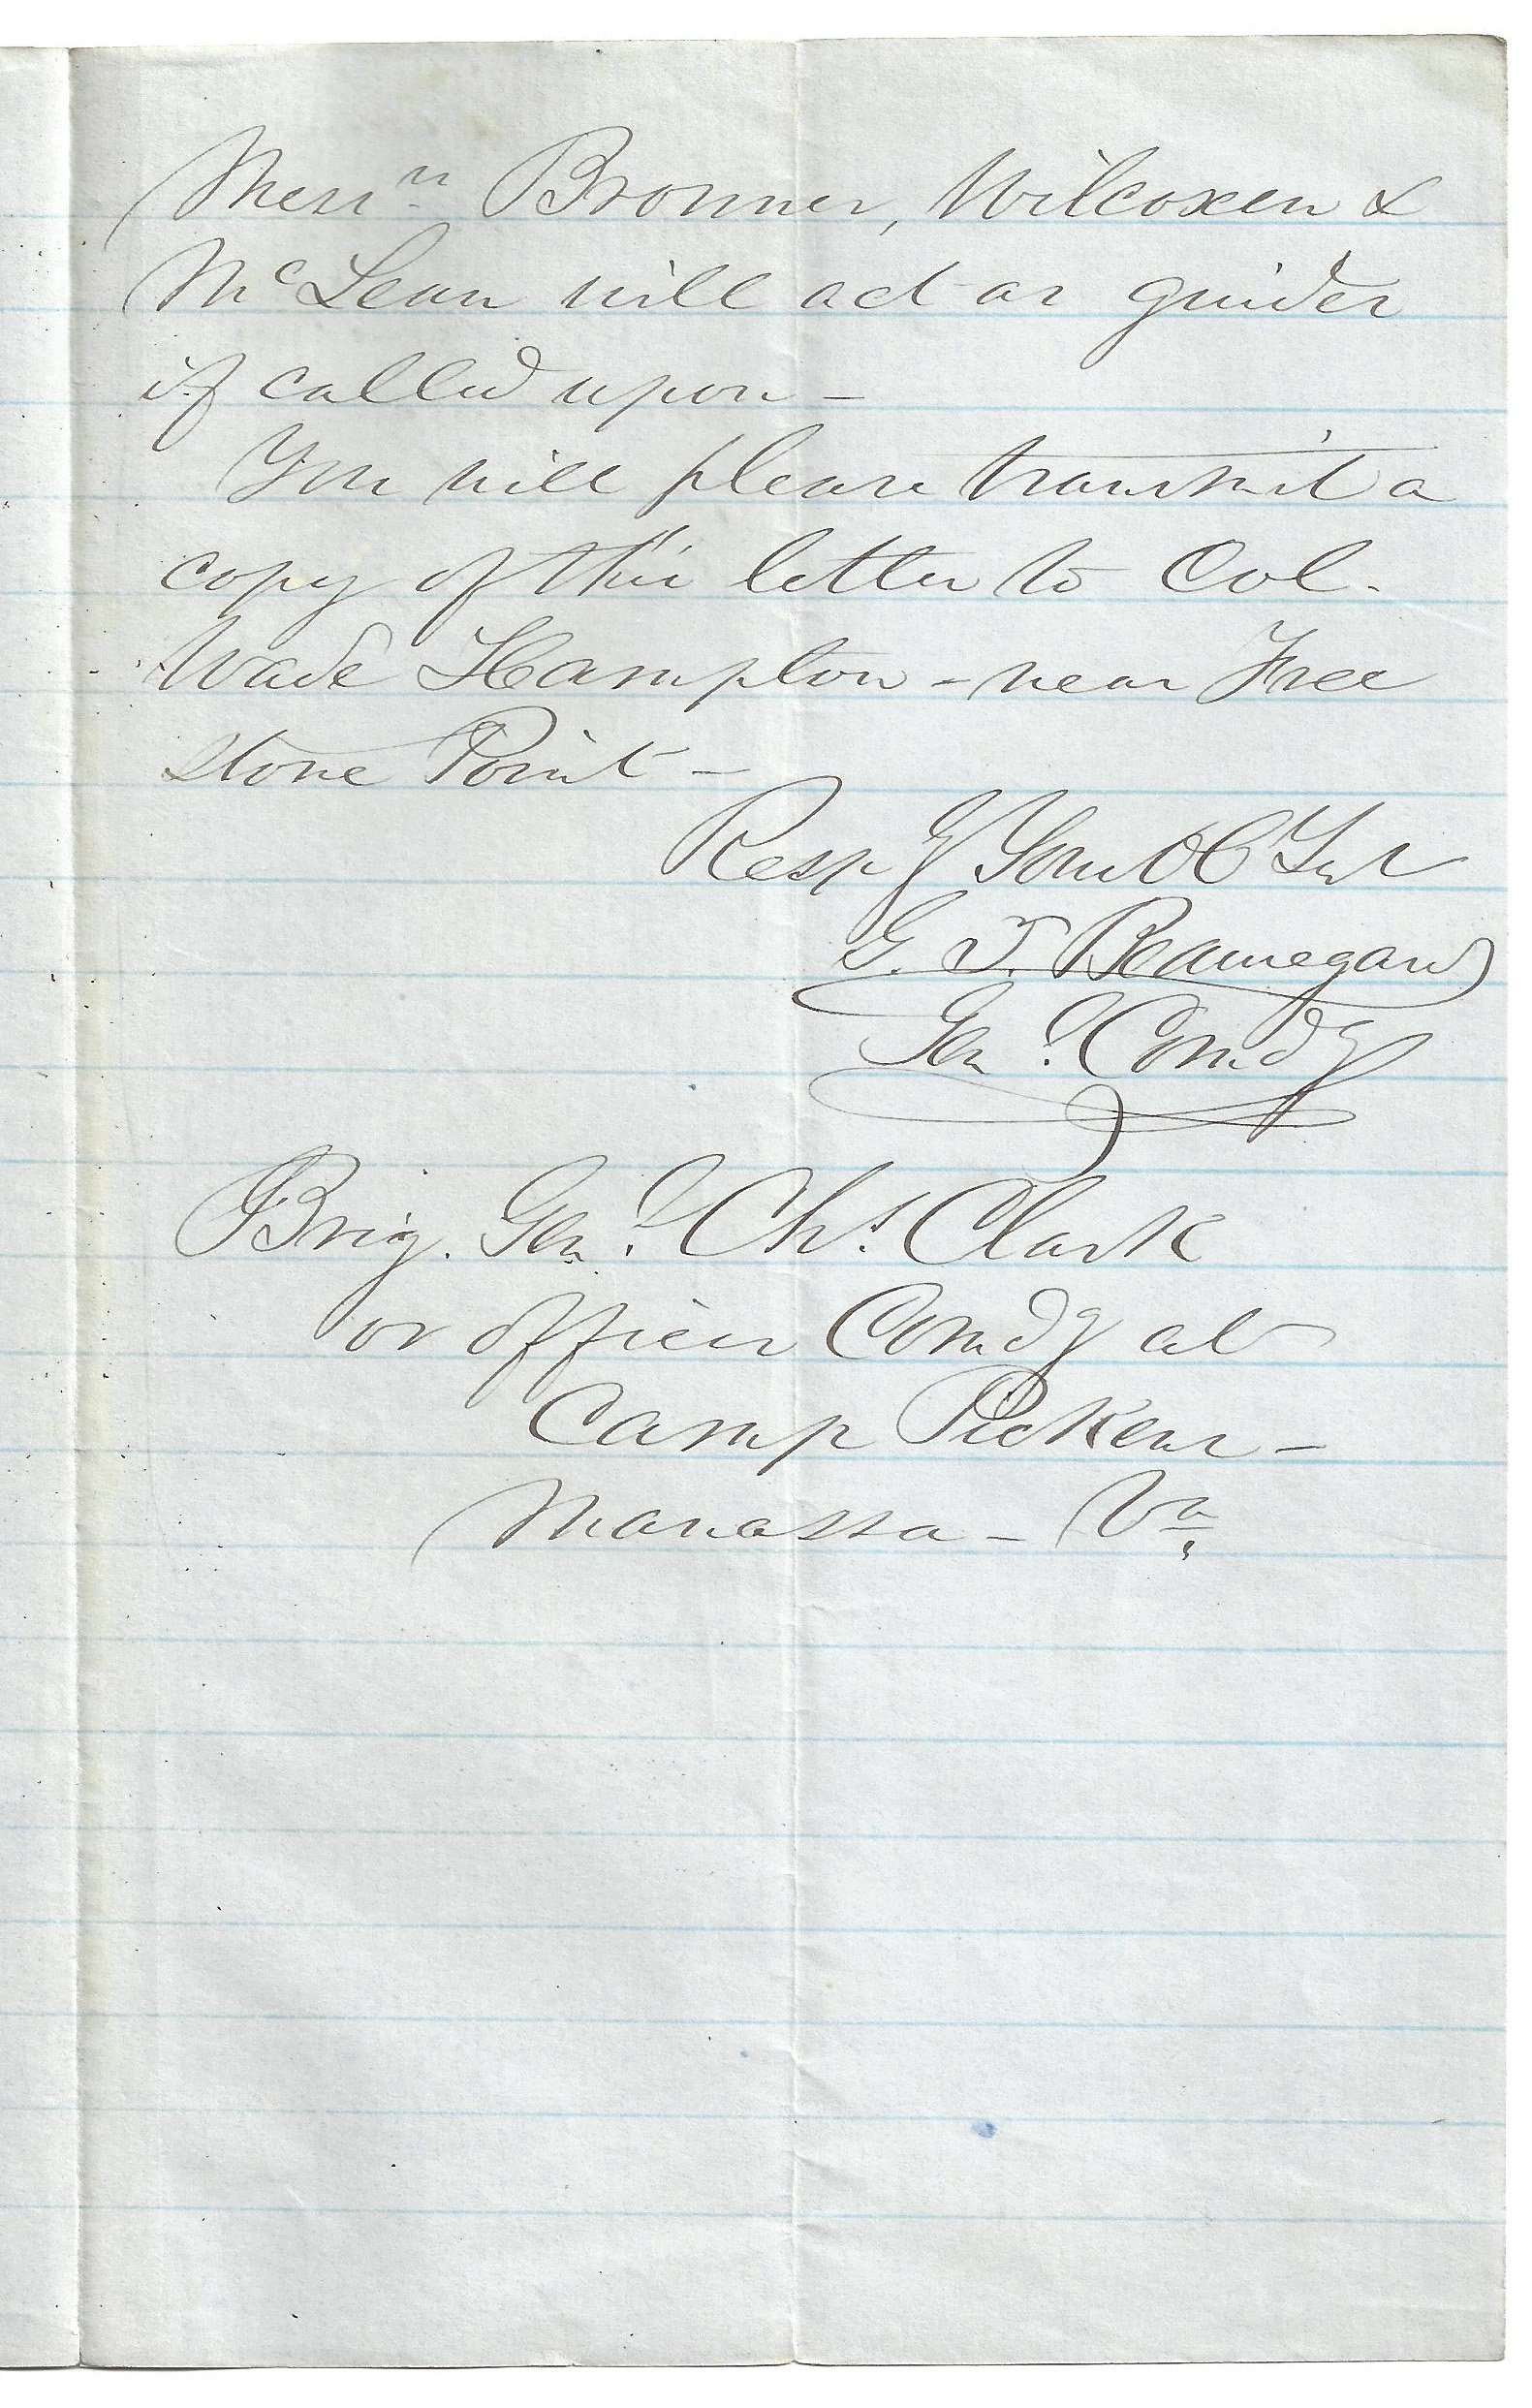 Messrs Bronner, Wilcoxen &
McLean will act as guides
if called upon —
You will please transmit a
copy of this letter to Col.
Wade Hampton — near Free
stone Point —
Respy Your Ob Svt
G. T. Beauregard
Genl Comdg
Brig. Genl Chs Clark
or officer Comdg at
Camp Pickens —
Manassa — Va,